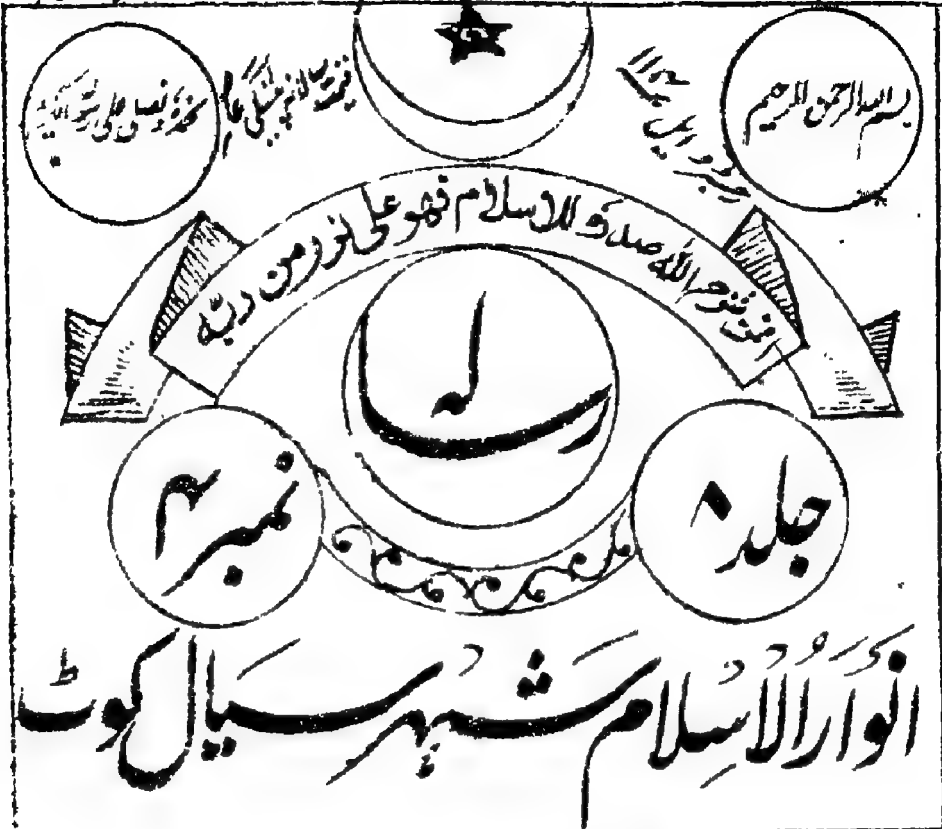 بسم اللہ الرحمن الرحیم
رجسٹرڈ ایل نمبر
نحمدہ و نصلی علی رسولہ الکریم
افمن شرح الله صدره للاسلام فهو على نور من ربه
رسالہ
جلد ۸
نمبر ۴
انوار الاسلام شہر سیال کوٹ